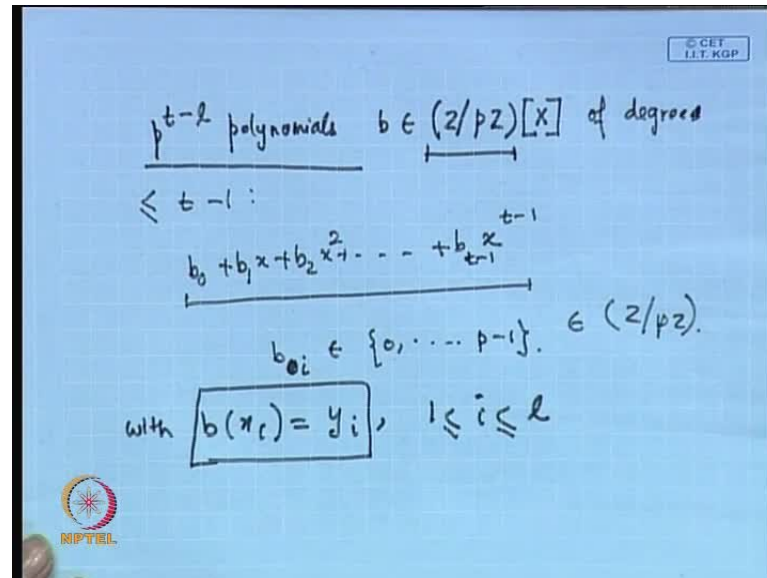 © CET
I.I.T. KGP
p^{t-l} polynomials b ∈ (Z/pZ)[X] of degrees
≤ t-1 :
b_0 + b_1 x + b_2 x^2 + - - - + b_{t-1} x^{t-1}
b_i ∈ {0, ..... p-1}. ∈ (Z/pZ).
with b(x_i) = y_i, 1 ≤ i ≤ l
NPTEL